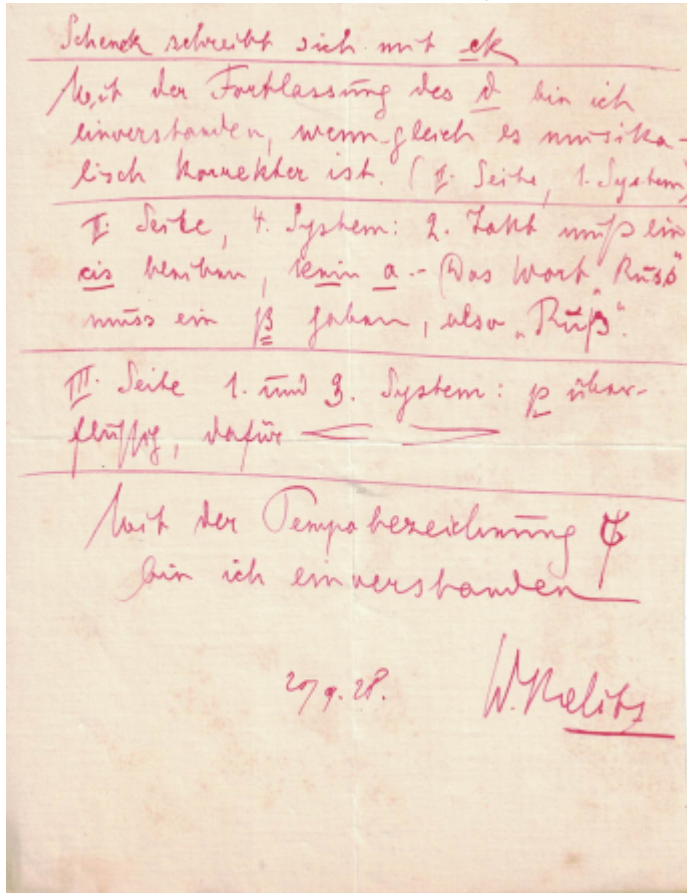 Schenck schreibt sich mit ck
Mit der Fortlassung des d bin ich
einverstanden, wenn gleich es musika-
lisch korrekter ist. (II. Seite, 1. System)
II. Seite, 4. System: 2. Takt muß ein
cis bleiben, kein a.- Das Wort "Russ"
muss ein ß haben, also "Ruß".
III. Seite 1. und 3. System: p über-
flüssig, dafür
Mit der Tempobezeichnung
bin ich einverstanden
20/9.28.